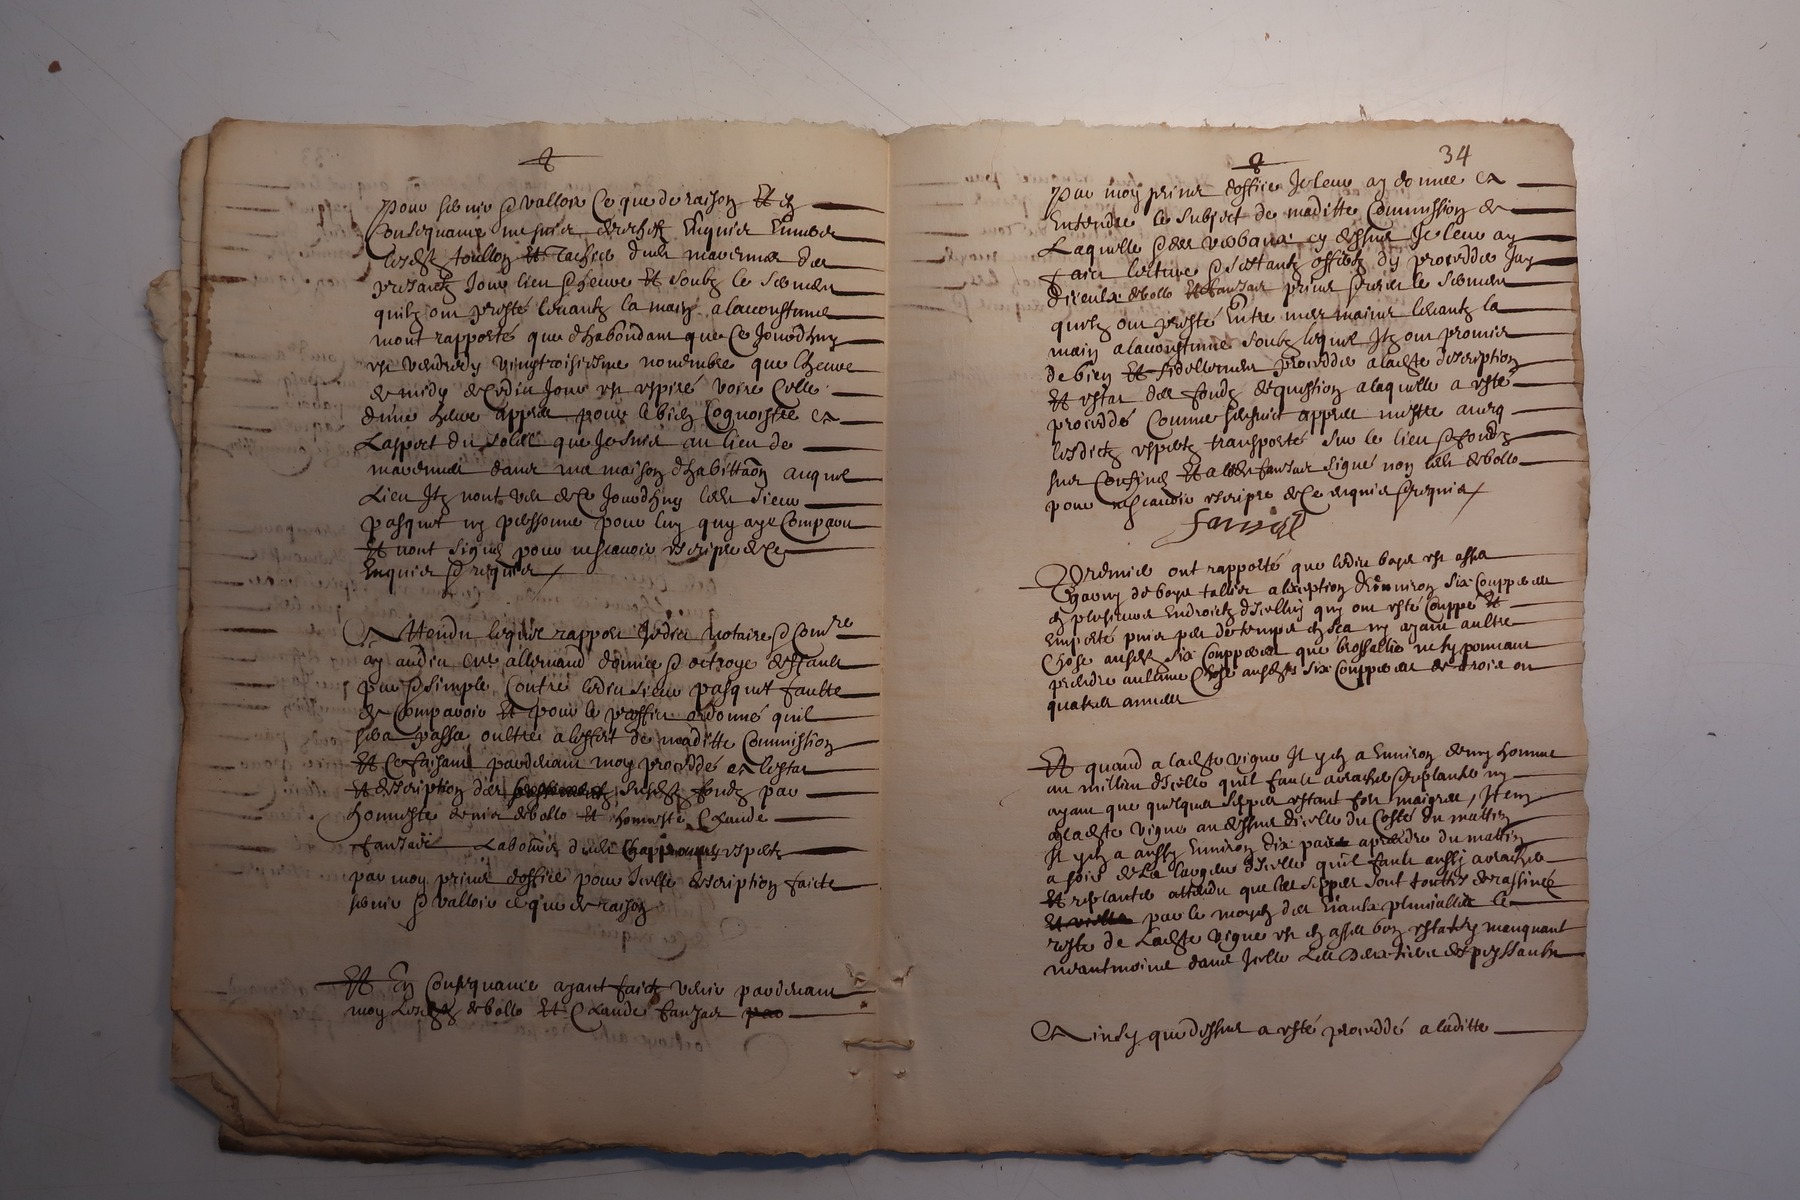 pour servir & valloir ce que de raison Et en
consequance me suis
lesdictz toullon Et
presantz Jour lieu & heure Et soubz le serment
quilz ont presté levantz la main a laccoustumé
mont rapporté que dhabondant que ce Jourdhuy
est vendredy vingttroisiesme novembre que lheure
de midy de cedict Jour est expiré voire celle
dune heure appres pour le bien cognoistre a
Laspect du soleil que Je suis au lieu de
dans ma maison dhabittaon auquel
Lieu Ilz nont veu de ce Jourdhuy ledit sieur
pasquet ny personne pour luy quy aye comparu
Et nont signés pour ne scavoir escripre de ce
Enquis & requis
Attendu lequel rapport Jedict Notaire & comre
ay audict allemand donné & octroyé deffault
pur & simple contre ledict sieur pasquet faulte
de comparoir Et pour le proffit ordonné quil
sera passé oultre a leffect de maditte commission
Et ce faisant pardevant moy procedé a lestat
Et description des susdictz fondz par
honneste denis debollo Et honneste Claude
Laboureur expertz
par moy prins doffice pour Icelle description faicte
servir & valloir ce que de raison
Et En consequance ayant faict venir pardevant
moy lesdictz debollo Et Claude
34
par moy prins doffice Je leur ay donné a
entendre le subject de maditte commission de
Laquelle & des verbaux cy dessus Je leur ay
faict lecture & sestantz offertz dy proceder Jay
diceulx debollo Et prins & receu le serment
quilz ont presté Entre mes mains levantz la
main a laccoustumé soubz lequel Ilz ont promis
de bien Et fidellement proceder a ladte description
Et estat des fondz de question a laquelle a esté
procedé comme sensuict appres mestre avec
lesdictz expertz transporté sur le lieu & fondz
sus confiné Et a ledit signé non ledit debollo
pour ne scavoir escripre de ce enquis & requis
Premier ont rapporté que ledict boys est assez
garny de boys tallis a lexeption denviron six couppées
en plusieurs endroictz dicelluy quy ont esté couppé Et
emporté puis peu de temps en sca ny ayant aultre
chose ausdtes six couppées que brossallie ne sy pouvant
prendre aulcune chose ausdtes six couppées de trois ou
quatre années
Et quand a ladte vigne Il y en a Environ demy homme
au millieu dicelle quil fault arracher & replanter ny
ayant que quelques seppes estant fort maigres, Item
a ladte vigne au dessus dicelle du costé du mattin
Il y en a aussy Environ dix a prendre du mattin
a soir de la largeur dicelle quil fault aussy arracher
Et replanter attendu que les seppes sont touttes derassinée
par le moyen des eaulx pluviallles le
reste de Ladte vigne est en assez bon estat ny manquant
neantmoins dans Icelle
Ainsy que dessus a esté procedé a laditte